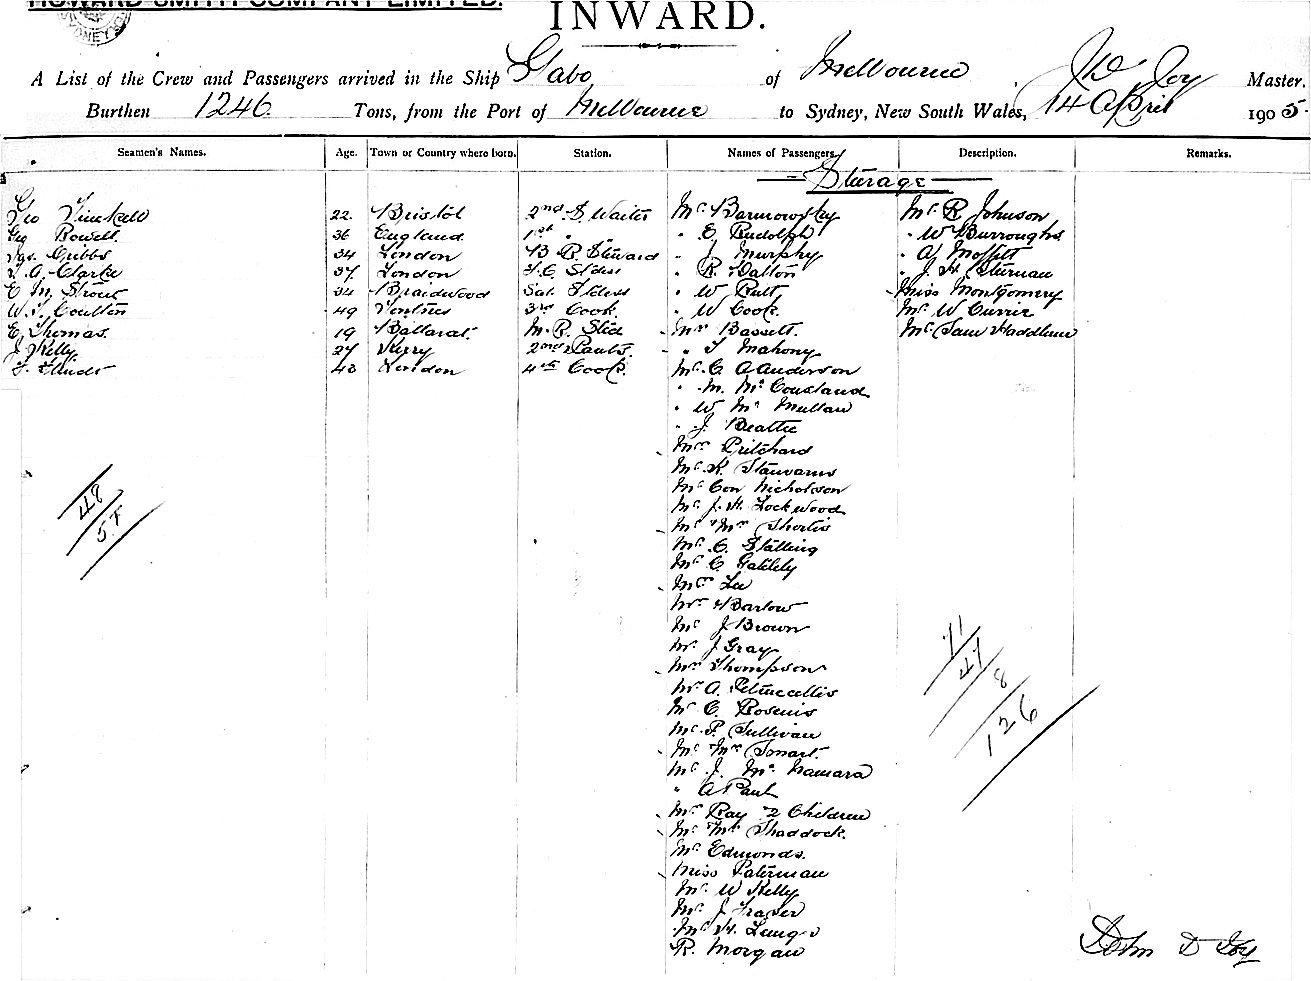 HOWARD SMITH COMPANY LIMITED.
INWARD.
A List of the Crew and Passengers arrived in the Ship Gabo of Melbourne Master.
Burthen 1246 Tons, from the Port of Melbourne to Sydney, New South Wales, 14 April 1905
Seamen's Names. Age. Town or Country where born. Station. Names of Passengers Description. Remarks.
Sturage
Geo 22 Bristol 2nd S. Waiter Mr R Johnson
Geo Rowell 36 England 1st " " E Rudolph " W Burroughs
Gibbs 34 London B R Steward " J Murphy " A Moffitt
A. Clarke 37 London " R Dalton " J H Sturman
E M Strout 34 Braidwood " W Rutt Miss Montgomery
W. J. Coulten 49 3rd Cook " W Cook Mr W Currie
E Thomas 19 Ballarat Mrs Bassett Mr Sam
J Kelly 27 Kerry " J Mahony
43 London 4th Cook Mr C A Anderson
" M. Mc Causland
" W Mc Mullan
" J Beattie
Mrs Pritchard
Mr
Mr Con Nicholson
Mr J. H. Lockwood
Mr & Mrs Shortis
Mr C. Stalling
Mr C
Mrs Lee
Mr Barlow
Mr J Brown
Mr J Gray
Mrs Thompson
Mr A.
Mr C.
Mr P. Sullivan
Mr Mrs Smart
Mr J. Mc Namara
" A Paul
Mrs Ray 2 Children
Mr Mrs Shaddock.
Mr Edmonds.
Miss Paterman
Mr W Kelly
Mr J Fraser
Mr H. Lange
R. Morgan
48
57
71
47
8
126
John D Joy